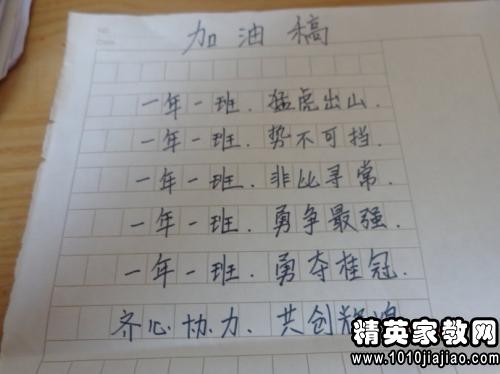 加油稿
一年一班.猛虎出山.
一年一班.势不可挡.
一年一班.非比寻常.
一年一班.勇争最强.
一年一班.勇夺桂冠.
齐心协力、共创辉煌
精英家教网
www.1010jiajiao.com